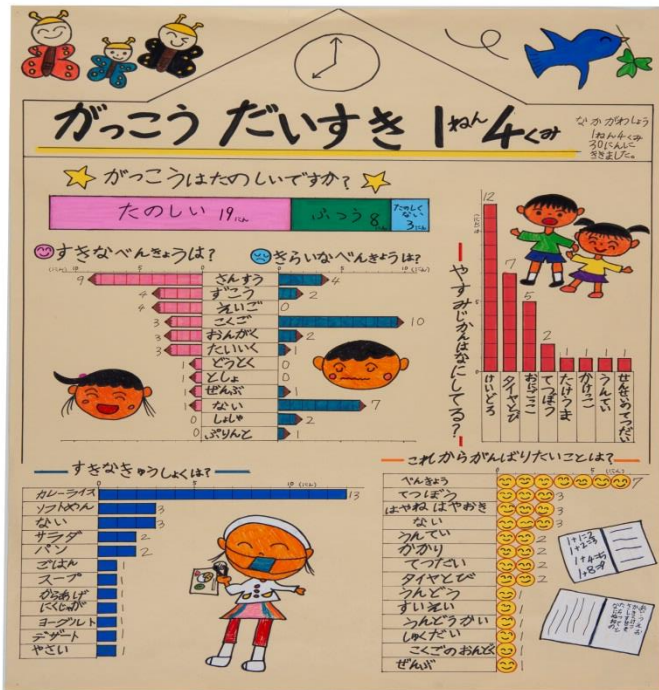 がっこう だいすき 1ねん4くみ
なかがわしょう
1ねん4くみ
30にんに
ききました。
がっこうはたのしいですか?
たのしい 19にん
ふつう 8にん
たのしく
ない
3にん
すきなべんきょうは?
きらいなべんきょうは?
(にん) 10 5 0 0 5 10 (にん)
9 さんすう 4
4 ずこう 2
4 えいご 0
3 こくご 10
3 おんがく 2
3 たいいく 1
1 どうとく 0
1 としょ 0
1 ぜんぶ 1
1 ない 7
0 しょしゃ 2
0 ぷりんと 1
やすみじかんはなにしてる?
(にん)
12 けいどろ
7 タイヤとび
5 おにごっこ
2 てつぼう
1 たけうま
1 かけっこ
1 うんてい
1 せんせいのてつだい
すきなきゅうしょくは?
0 5 10 (にん)
カレーライス 13
ソフトめん 3
ない 3
サラダ 2
パン 2
ごはん 1
スープ 1
からあげ 1
にくじゃが 1
ヨーグルト 1
デザート 1
やさい 1
これからがんばりたいことは?
0 5 (にん)
べんきょう 7
てつぼう 3
はやね はやおき 3
ない 3
うんてい 2
かかり 2
てつだい 2
タイヤとび 2
うんどう 1
すいえい 1
うんどうかい 1
しゅくだい 1
こくごのおんどく 1
ぜんぶ 1
1+1=2
1+2=3
1+4=5
1+8=9